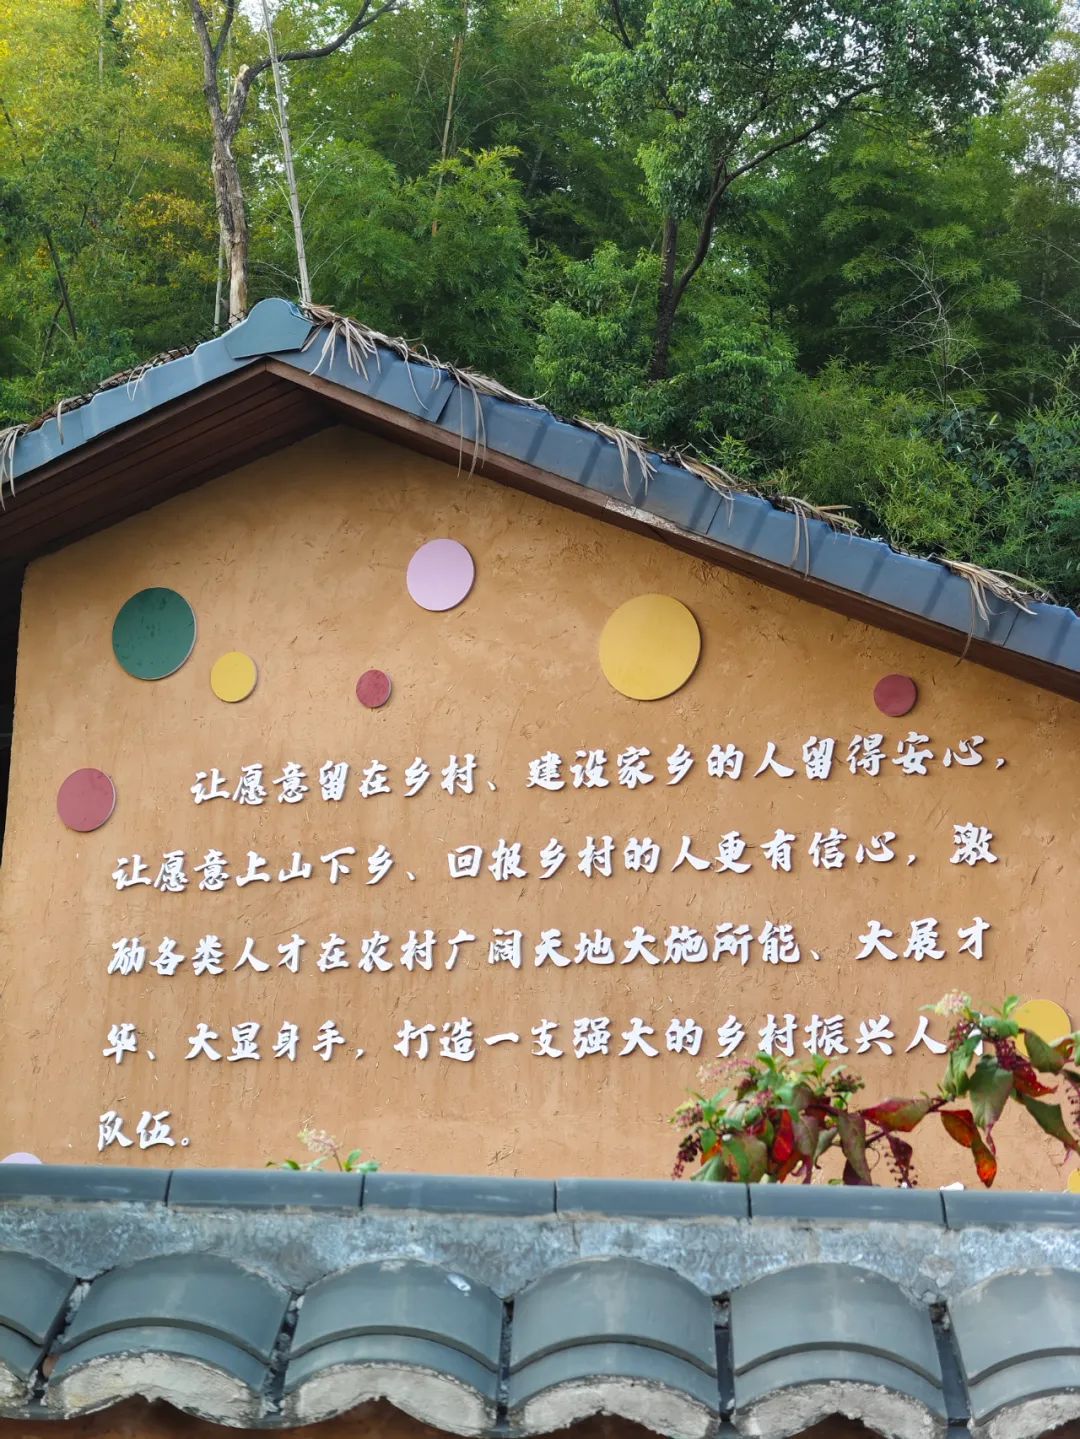 让愿意留在乡村、建设家乡的人留得安心，
让愿意上山下乡、回报乡村的人更有信心，激
励各类人才在农村广阔天地大施所能、大展才
华、大显身手，打造一支强大的乡村振兴人才
队伍。